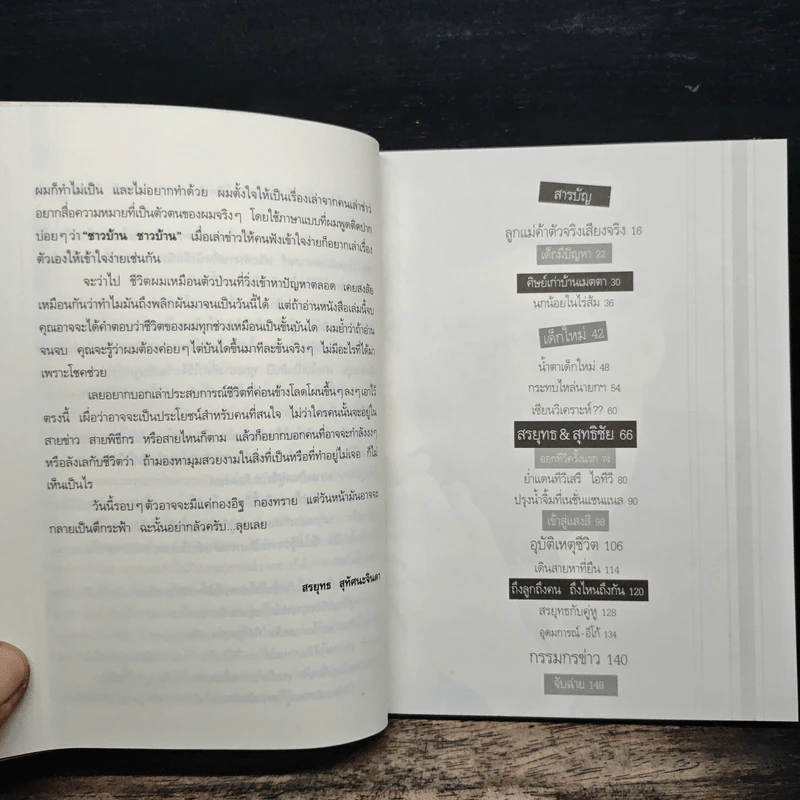 ผมก็ทำไม่เป็น และไม่อยากทำด้วย ผมตั้งใจให้เป็นเรื่องเล่าจากคนเล่าข่าว
อยากสื่อความหมายที่เป็นตัวตนของผมจริงๆ โดยใช้ภาษาแบบที่ผมพูดติดปาก
บ่อยๆว่า “ชาวบ้าน ชาวบ้าน” เมื่อเล่าข่าวให้คนฟังเข้าใจง่ายก็อยากเล่าเรื่อง
ตัวเองให้เข้าใจง่ายเช่นกัน
จะว่าไป ชีวิตผมเหมือนตัวป่วนที่วิ่งเข้าหาปัญหาตลอด เคยสงสัย
เหมือนกันว่าทำไมมันถึงพลิกผันมาจนเป็นวันนี้ได้ แต่ถ้าอ่านหนังสือเล่มนี้จบ
คุณอาจจะได้คำตอบว่าชีวิตของผมทุกช่วงเหมือนเป็นขั้นบันได ผมย้ำว่าถ้าอ่าน
จนจบ คุณจะรู้ว่าผมต้องค่อยๆไต่บันไดขึ้นมาทีละขั้นจริงๆ ไม่มีอะไรที่ได้มา
เพราะโชคช่วย
เลยอยากบอกเล่าประสบการณ์ชีวิตที่ค่อนข้างโลดโผนขึ้นๆลงๆเอาไว้
ตรงนี้ เผื่อว่าอาจจะเป็นประโยชน์สำหรับคนที่สนใจ ไม่ว่าใครคนนั้นจะอยู่ใน
สายข่าว สายพิธีกร หรือสายไหนก็ตาม แล้วก็อยากบอกคนที่อาจจะกำลังงงๆ
หรือลังเลกับชีวิตว่า ถ้ามองหามุมสวยงามในสิ่งที่เป็นหรือที่ทำอยู่ไม่เจอ ก็ไม่
เห็นเป็นไร
วันนี้รอบๆตัวอาจจะมีแค่กองอิฐ กองทราย แต่วันหน้ามันอาจจะ
กลายเป็นตึกระฟ้า ฉะนั้นอย่ากลัวครับ...ลุยเลย
สรยุทธ สุทัศนะจินดา
สารบัญ
ลูกแม่ค้าตัวจริงเสียงจริง 16
เด็กมีปัญหา 22
ศิษย์เก่าบ้านเมตตา 30
นกน้อยในไร่ส้ม 36
เด็กใหม่ 42
น้ำตาเด็กใหม่ 48
กระทบไหล่นายกฯ 54
เซียนวิเคราะห์?? 60
สรยุทธ & สุทธิชัย 66
ออกทีวีครั้งแรก 74
ย่ำแดนทีวีเสรี ไอทีวี 80
ปรุงน้ำจิ้มที่เนชั่นแชนแนล 90
เข้าสู่แสงสี 98
อุบัติเหตุชีวิต 106
เดินสายหาที่ยืน 114
ถึงลูกถึงคน ถึงไหนถึงกัน 120
สรยุทธกับคู่หู 128
อุดมการณ์-อีโก้ 134
กรรมกรข่าว 140
จับฉ่าย 148